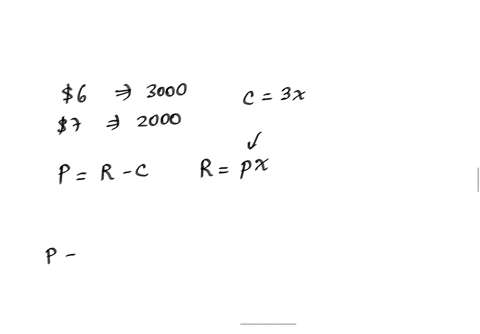 $6 ⇒ 3000 C = 3x
$7 ⇒ 2000
P = R - C R = px
P -